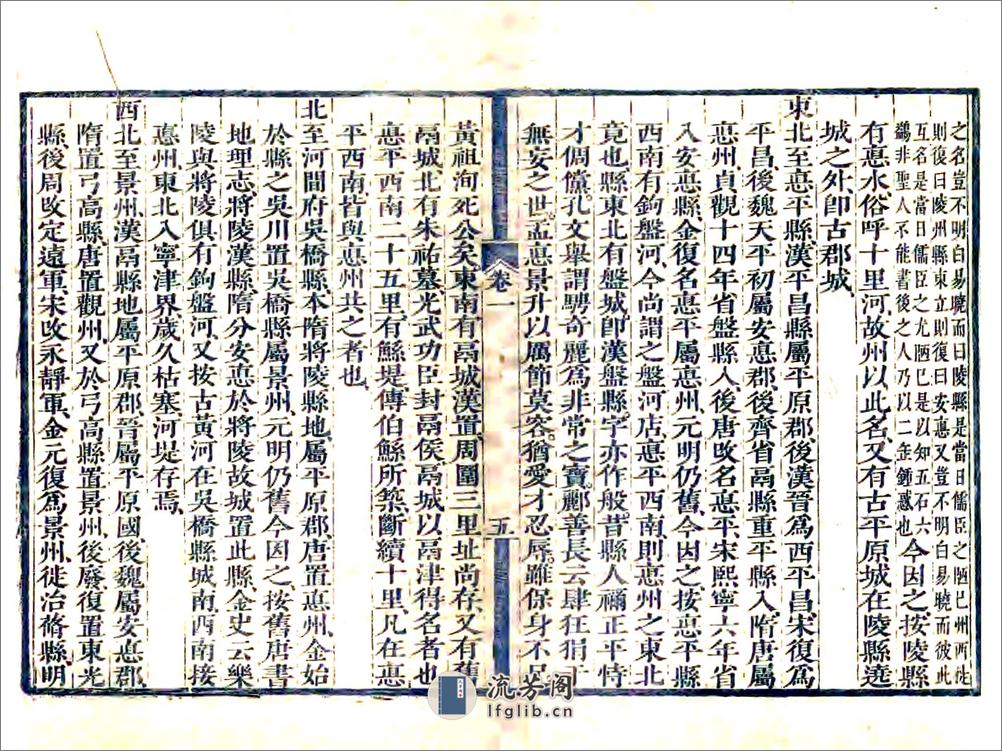 之名豈不明白易曉而曰陵縣是當日儒臣之陋已州西徙
則復曰陵州縣東立則復曰安惪又豈不明白易曉而彼此
互名是當日儒臣之尤陋巳是以知五石六
鷁非聖人不能書後之人乃以二金鍾惑也今因之按陵縣
有惪水俗呼十里河故州以此名又有古平原城在陵縣遶
城之外卽古郡城
東北至惪平縣漢平昌縣屬平原郡後漢晉爲西平昌宋復爲
平昌後魏天平初屬安惪郡後齊省鬲縣重平縣入隋唐屬
惪州貞觀十四年省盤縣入後唐改名惪平宋熙寧六年省
入安惪縣金復名惪平屬惪州元明仍舊今因之按惪平縣
西南有鉤盤河今尚謂之盤河店惪平西南則惪州之東北
竟也縣東北有盤城卽漢盤縣字亦作般昔縣人禰正平特
才倜儻孔文舉謂騁奇麗爲非常之寶酈善長云肆狂狷于
無妄之世孟惪景升以厲節莫容猶愛才忍辱雖保身不足
卷一
五
黃祖洵死公矣東南有鬲城漢置周圍三里址尚存又有舊
鬲城北有朱祐墓光武功臣封鬲侯鬲城以鬲津得名者也
惪平西南二十五里有鯀堤傳伯鯀所築斷續十里凡在惪
平西南皆與惪州共之者也
北至河間府吳橋縣本隋將陵縣地屬平原郡唐置惪州金始
於縣之吳川置吳橋縣屬景州元明仍舊今因之按舊唐書
地理志將陵漢縣隋分安惪於將陵故城置此縣金史云樂
陵與將陵俱有鉤盤河又按古黃河在吳橋縣城南西南接
惪州東北入寧津界歲久枯塞河堤存焉
西北至景州漢鬲縣地屬平原郡晉屬平原國後魏屬安惪郡
隋置弓高縣唐置觀州又於弓高縣置景州後廢復置東光
縣後周改定遠軍宋改永靜軍金元復爲景州徙治蓨縣明
流芳阁
lfglib.cn